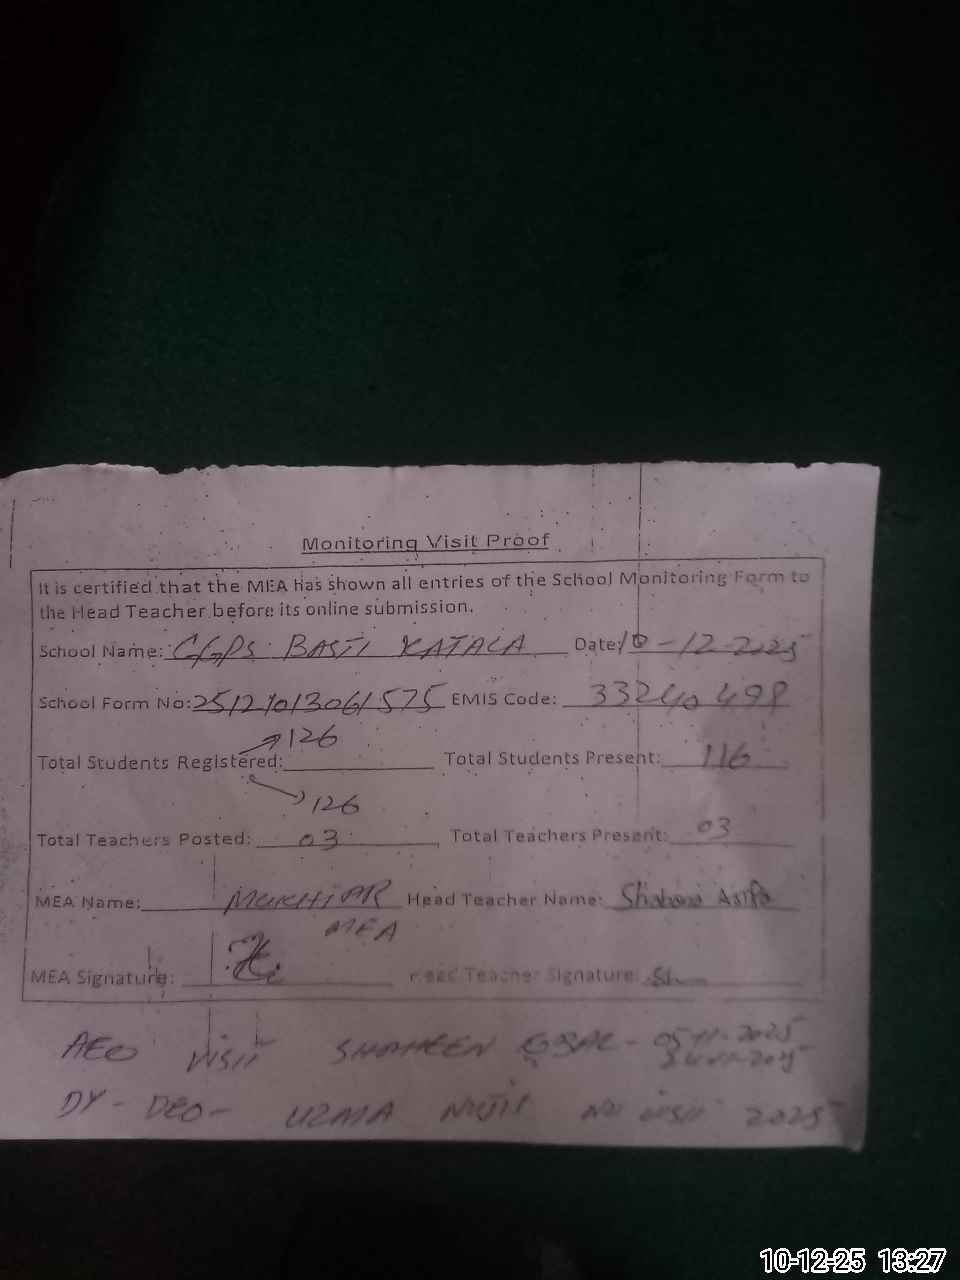 Monitoring Visit Proof
It is certified that the MEA has shown all entries of the School Monitoring Form to
the Head Teacher before its online submission.
School Name: GGPS BASTI KATALA Date: 10-12-2025
School Form No: EMIS Code: 33240498
126
Total Students Registered: Total Students Present: 116
126
Total Teachers Posted: 03 Total Teachers Present: 03
MEA Name: MUKHTIAR Head Teacher Name: Shabana Asifa
MEA
MEA Signature: Head Teacher Signature:
AEO VISIT SHAHEEN 05-11-2025
DY-DEO- UZMA NO VISIT 2025
10-12-25 13:27